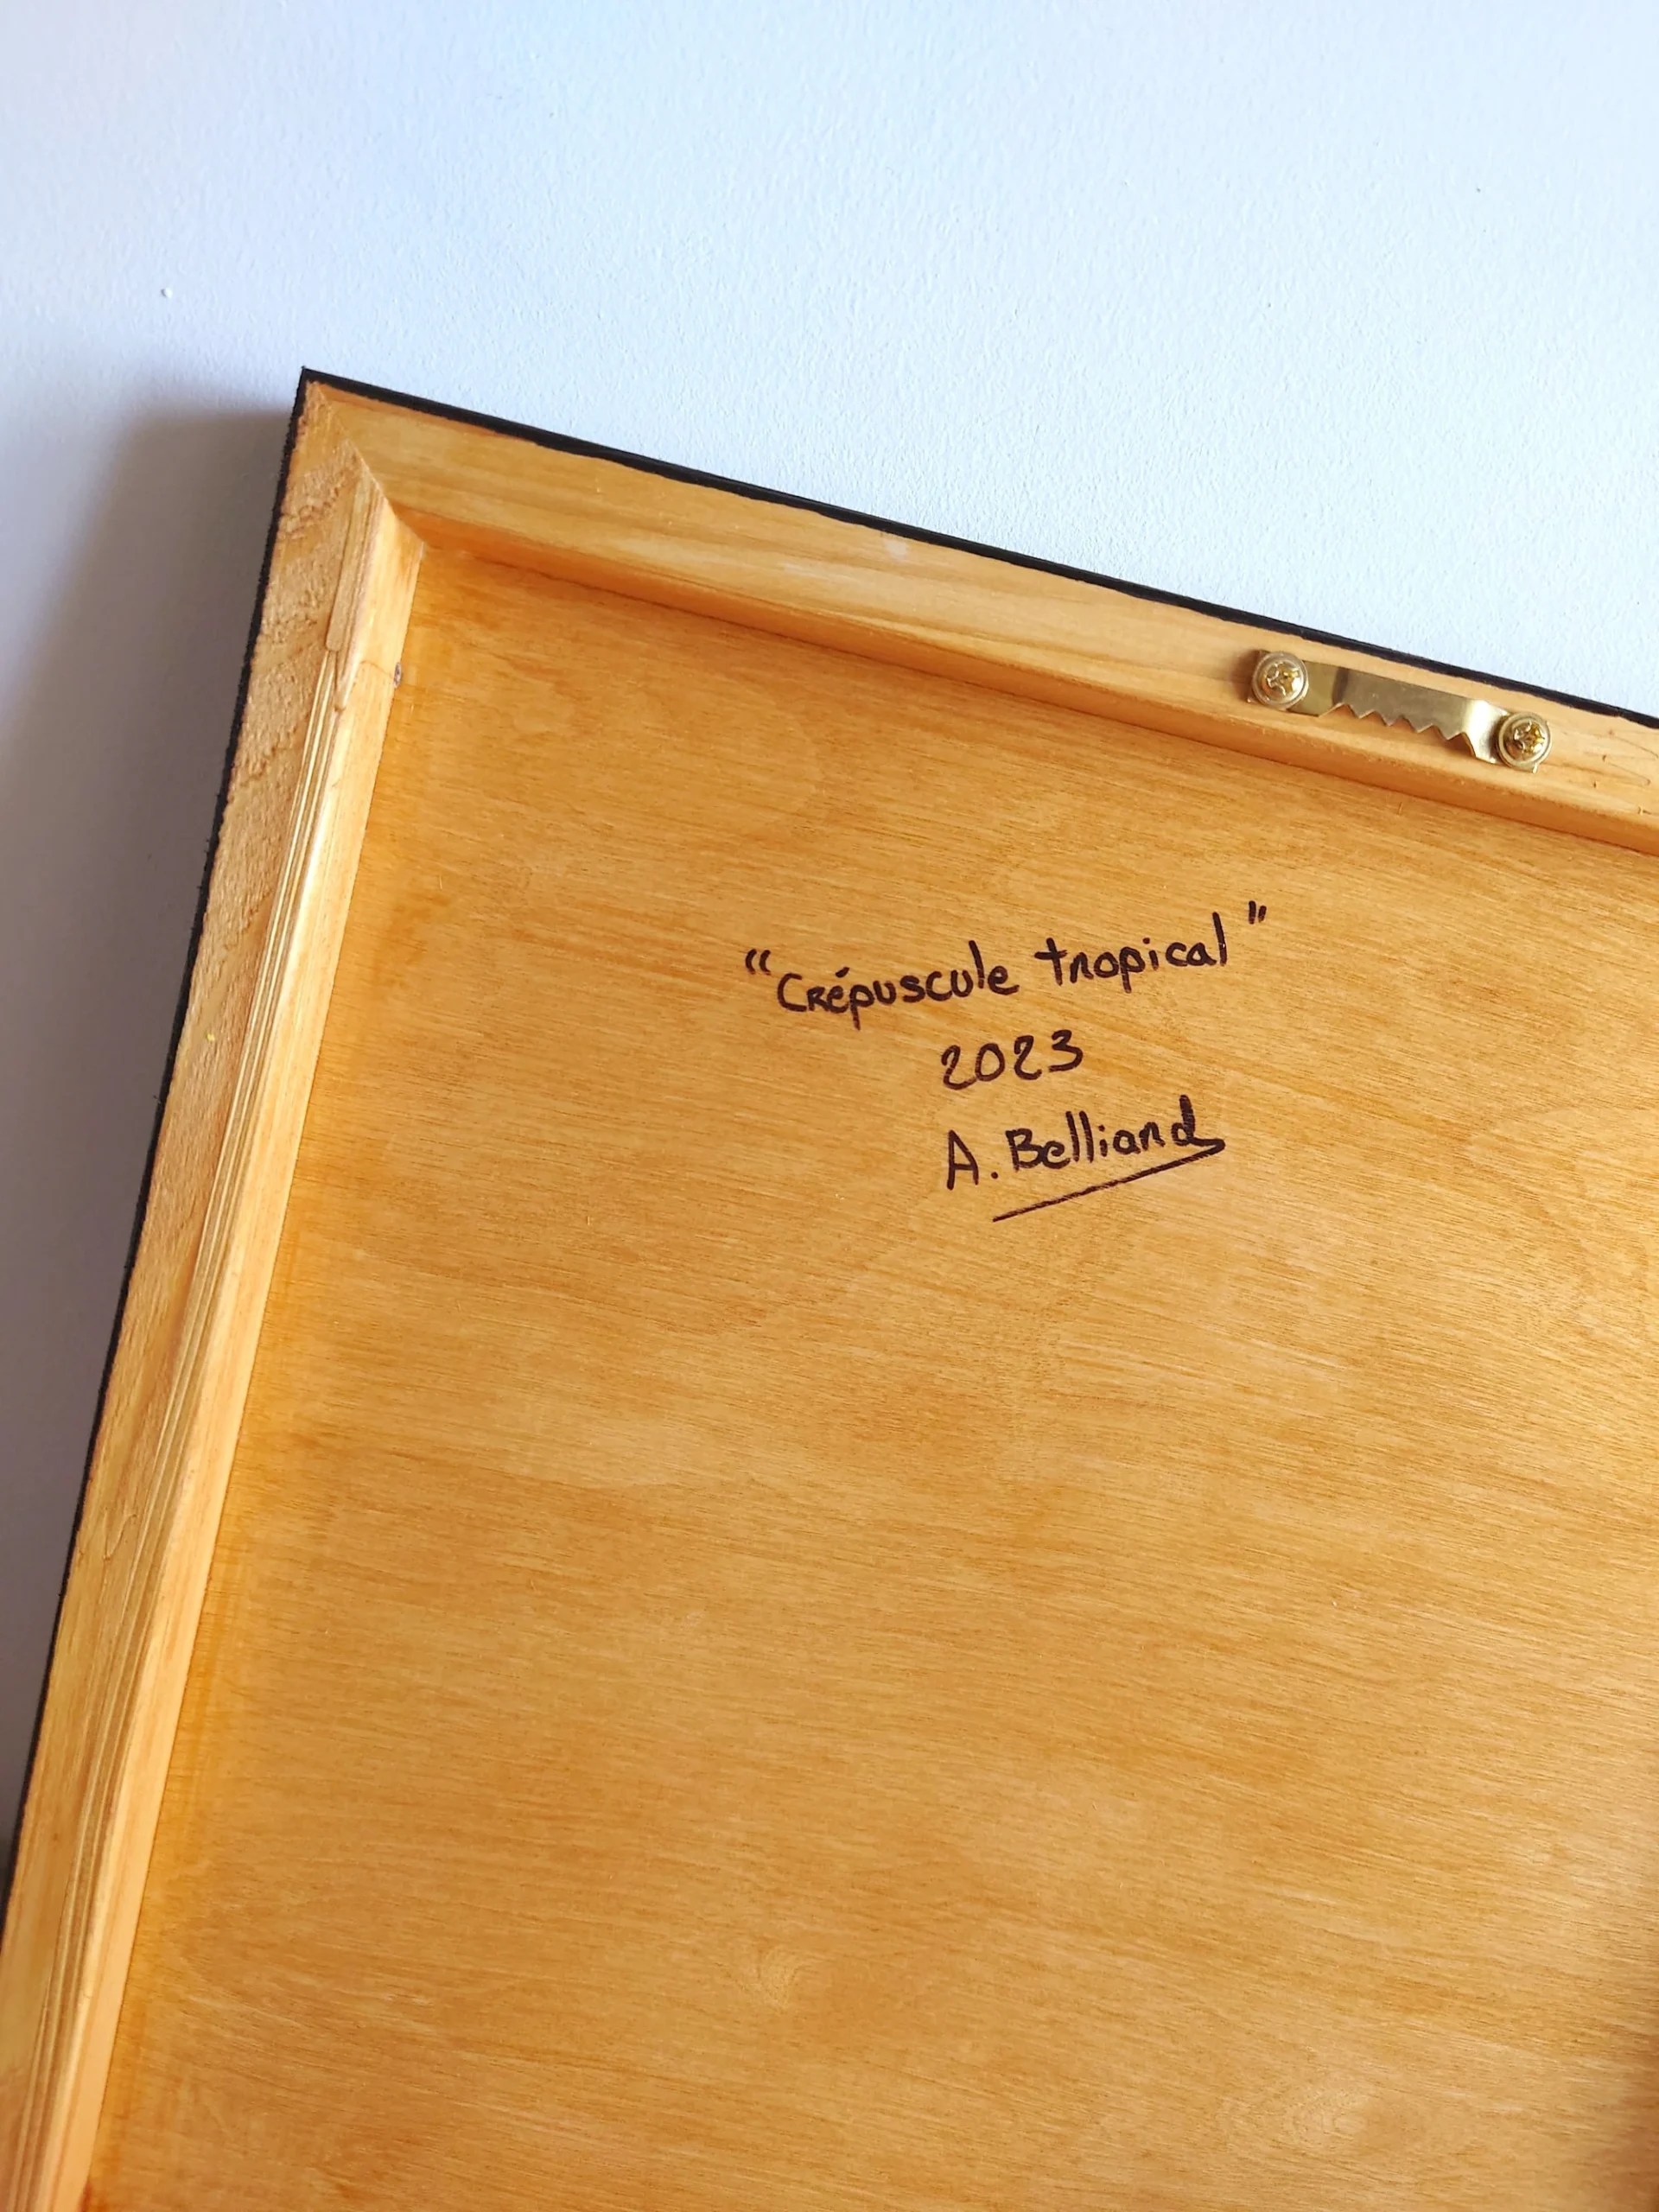 "Crépuscule tropical"
2023
A. Belliard